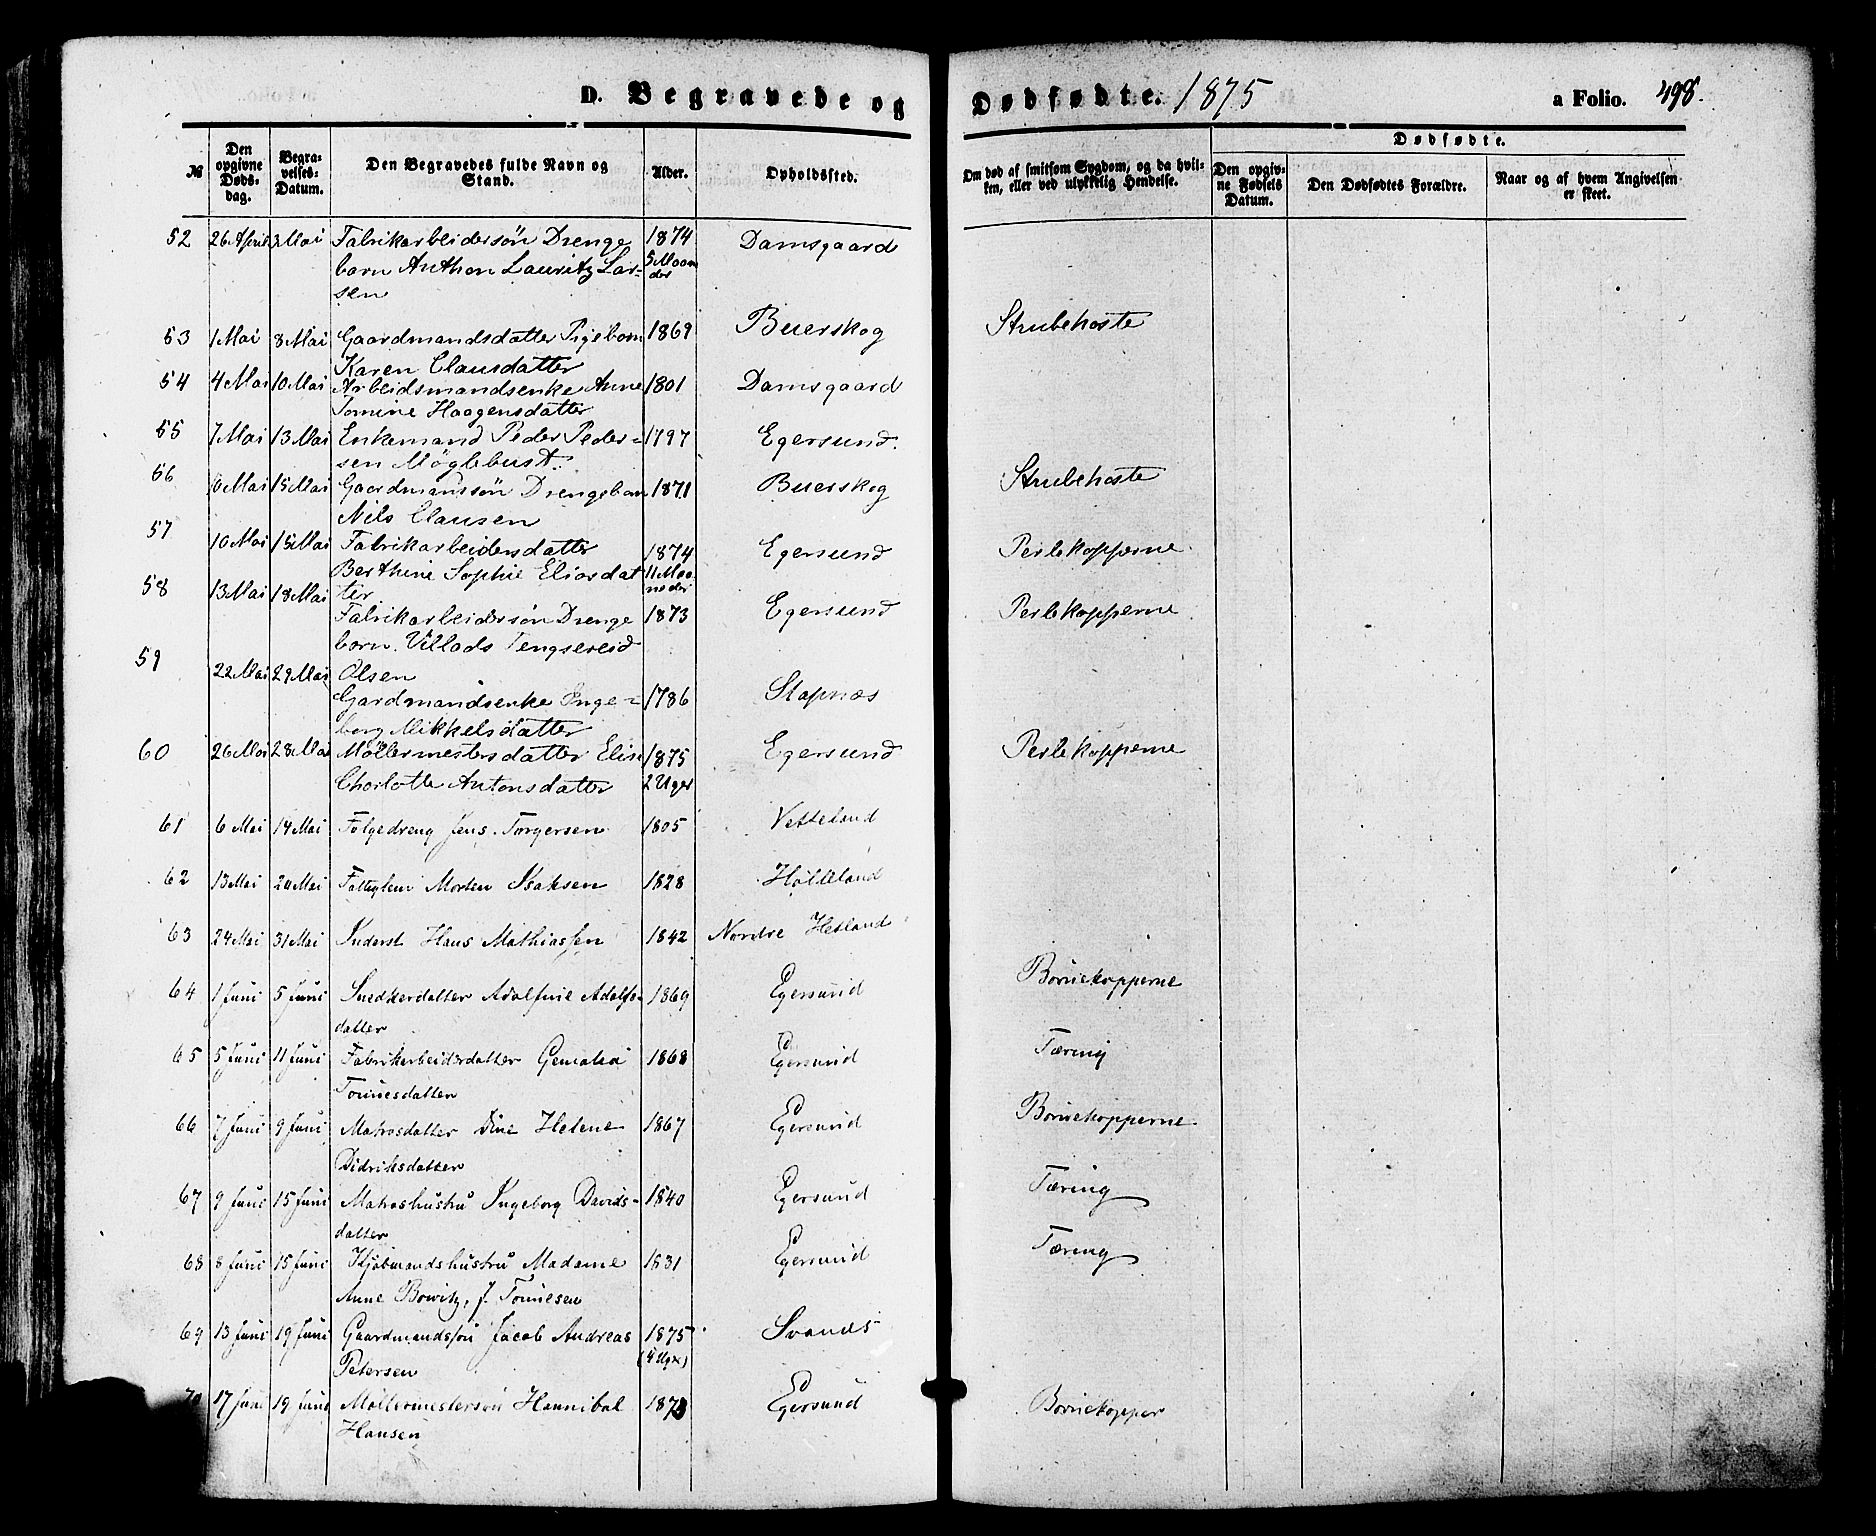 D. Begravede og Dødfødte. 1875 a Folio. 498.
№ Den opgivne Døds-dag. Begra-velses-Datum. Den Begravedes fulde Navn og Stand. Alder. Opholdssted. Om død af smitsom Sygdom, og da hvil-ken, eller ved ulykkelig Hendelse. Dødfødte. Den opgiv-ne Fødsels Datum. Den Dødfødtes Forældre. Naar og af hvem Angivelsen er skeet.
52 26 April 3 Mai Fabrikarbeidersøn Drenge 1874 Damsgaard
barn Anthon Lauritz Lar- 5 Maaneder
sen
53 1 Mai 8 Mai Gaardmandsdatter Pigebarn 1869 Buerskog Strubehoste
Karen Clausdatter
54 4 Mai 10 Mai Arbeidsmandsenke Anne 1801 Damsgaard
Tomine Haagensdatter
55 7 Mai 13 Mai Enkemand Peder Peder- 1797 Egersund.
sen Möglebust.
56 6 Mai 15 Mai Gaardmanssön Drengebarn 1871 Buerskog Strubehoste
Nils Clausen
57 10 Mai 15 Mai Fabrikarbeidersdatter 1874 Egersund Perlekopperne
Berthine Sophie Eliasdat 11 Maaneder
ter
58 13 Mai 18 Mai Fabrikarbeidersøn Drenge 1873 Egersund Perlekopperne
barn. Villads Tengsereid
Olsen
59 22 Mai 29 Mai Gardmandsenke Inge- 1786 Stapnæs
borg Mikkelsdatter
60 26 Mai 28 Mai Møllermestersdatter Elise 1875 Egersund Perlekopperne
Charlotte Antonsdatter 2 Uger
61 6 Mai 14 Mai Følgedreng Jens Torgersen 1805 Vetteland
62 13 Mai 20 Mai Fatteglem Morten Isaksen 1828 Hølleland
63 24 Mai 31 Mai Inderst Hans Mathiassen 1842 Nordre Hetland
64 1 Juni 5 Juni Snedkerdatter Adolfine Adolfs- 1869 Egersund Børnekopperne
datter
65 5 Juni 11 Juni Fabrikarbeiderdatter Gemalia 1868 Egersund Tæring
Tønnesdatter
66 7 Juni 9 Juni Matrosdatter Dine Helene 1867 Egersund Børnekopperne
Didriksdatter
67 9 Juni 15 Juni Matroshustru Ingeborg Davids- 1840 Egersund Tæring
datter
68 8 Juni 15 Juni Kjøbmandshustru Madame 1831 Egersund Tæring
Anne Bowitz, f. Tønnesen
69 13 Juni 19 Juni Gaardmandssøn Jacob Andreas 1875 Svanås
Petersen (4 Ugr)
70 17 Juni 19 Juni Møllermestersøn Hannibal 1873 Egersund Børnekopper
Hansen